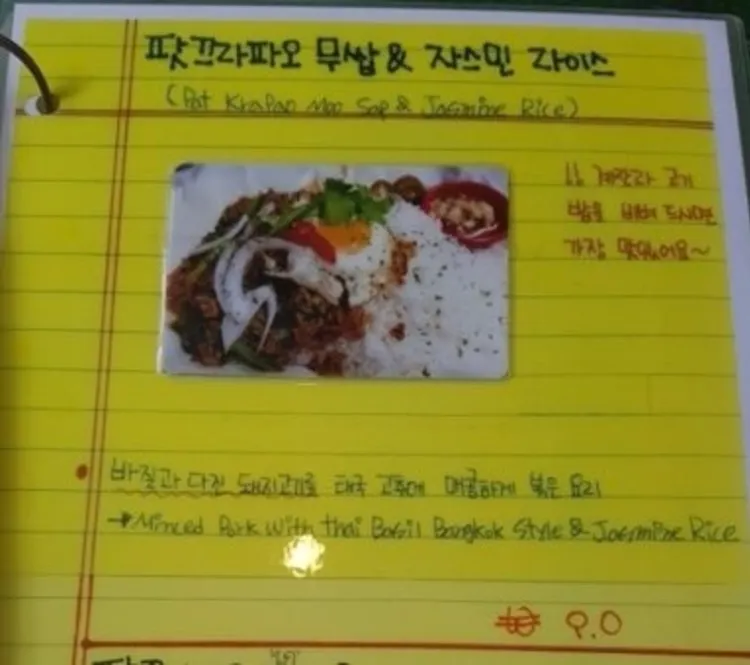 팟끄라파오 무쌉 & 자스민 라이스
(Pat KraPao Moo Sap & Jasmine Rice)
계란과 고기
밥을 비벼 드시면
가장 맛있어요~
바질과 다진 돼지고기를 태국 고추에 매콤하게 볶은 요리
→ Minced Pork with thai Basil Bangkok Style & Jasmine Rice
9.0